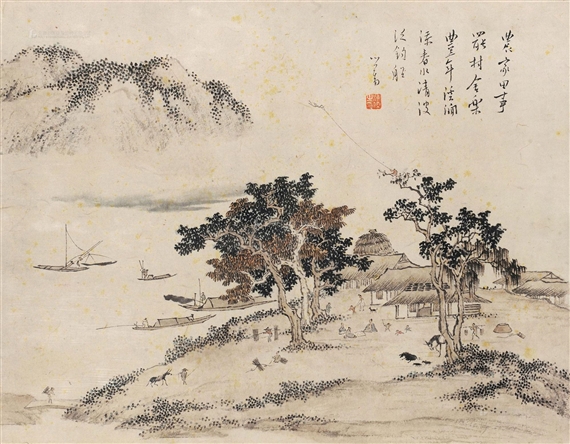 農家田事
罷村舍樂
豐年
春水清波
泛釣船
心畬